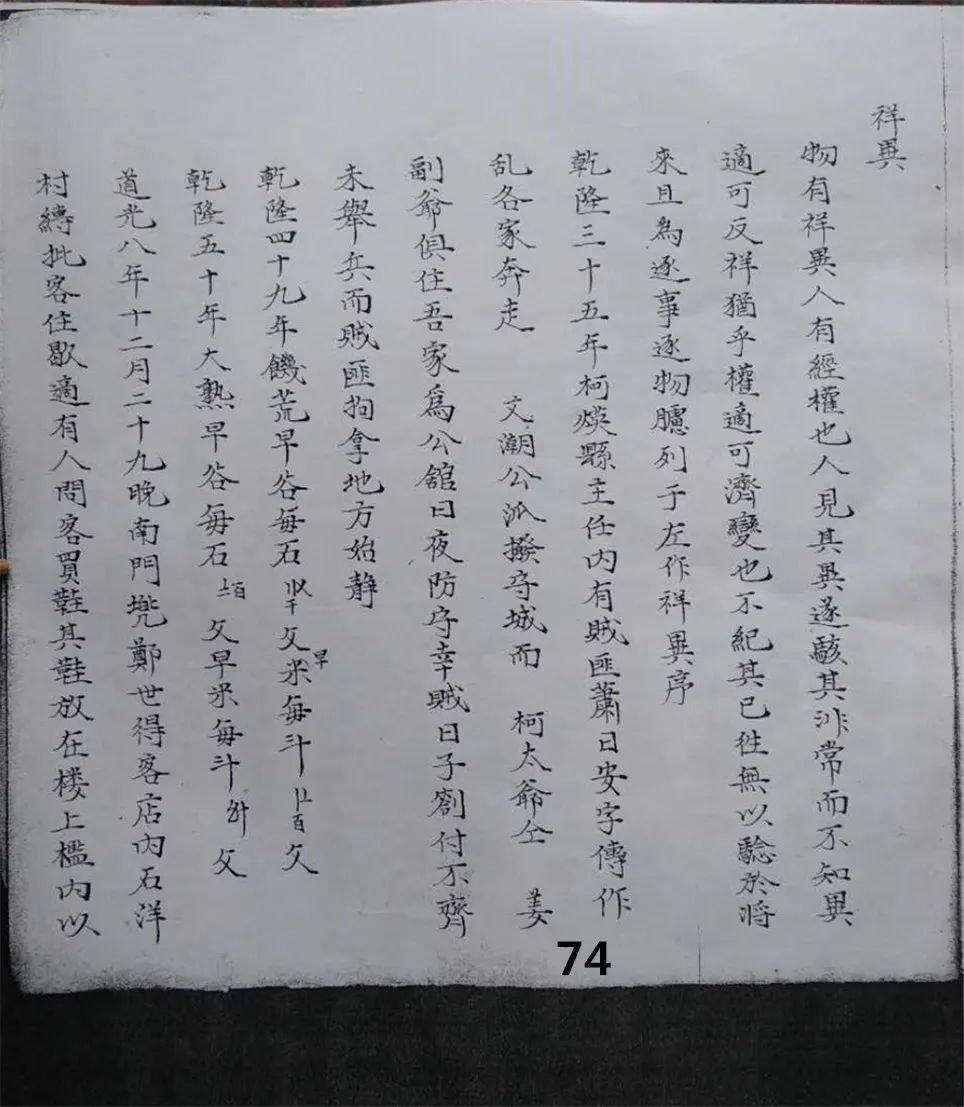 祥異
物有祥異人有經權也人見其異遂駭其非常而不知異
適可反祥猶乎權適可濟變也不紀其已徃無以驗於將
來且為逐事逐物臚列于左作祥異序
乾隆三十五年柯煐縣主任內有賊匪蕭日安字傳作
乱各家奔走 文潮公派撥守城而 柯太爺仝 姜
副爺俱住吾家爲公舘日夜防守幸賊日子劄付不齊
未舉兵而賊匪拘拿地方始静
乾隆四十九年饑荒早谷每石 文早米每斗 百 文
乾隆五十年大熟早谷每石 百 文早米每斗 文
道光八年十二月二十九晚南門兠鄭世得客店內石洋
村縳批客住歇適有人問客買鞋其鞋放在楼上檻内以
74